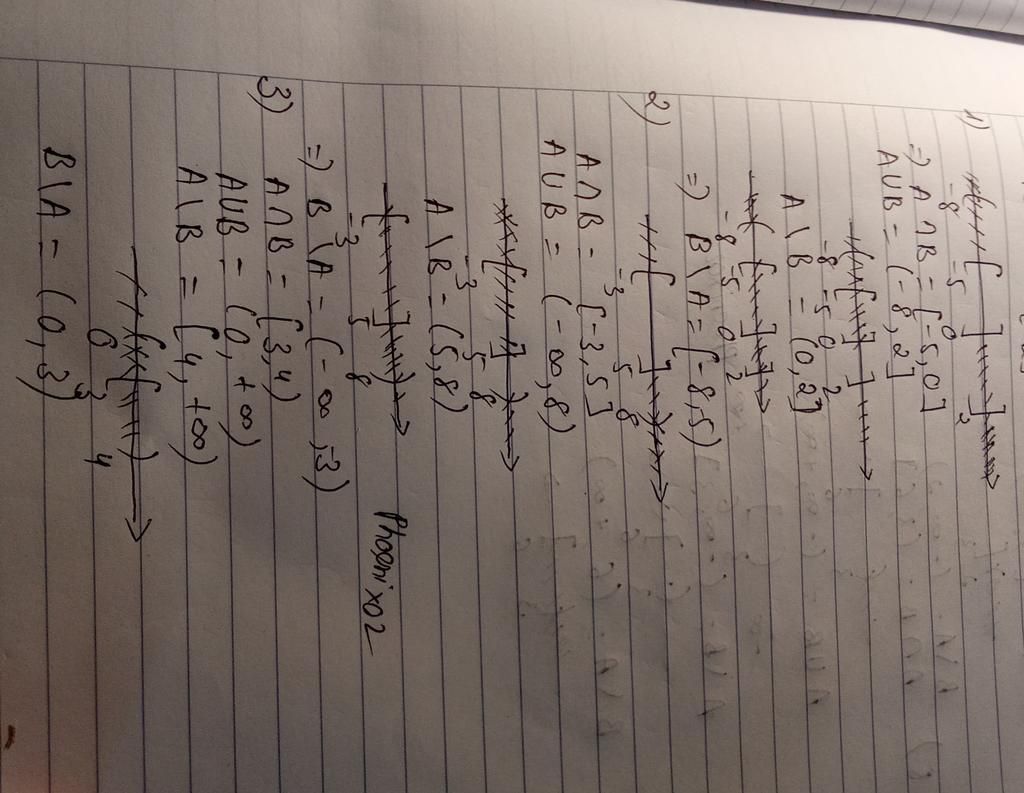 1)
-8 -5 0 2
=> A ∩ B = [-5, 0]
A ∪ B = (-8, 2]
-8 -5 0 2
A \ B = (0, 2]
-8 -5 0 2
=> B \ A = [-8, 5)
2)
-3 5 8
A ∩ B = [-3, 5]
A ∪ B = (-∞, 8)
-3 5 8
A \ B = (5, 8)
-3 5 8
Phoenix02
=> B \ A = (-∞, -3)
3) A ∩ B = [3, 4)
A ∪ B = (0, +∞)
A \ B = [4, +∞)
0 3 4
B \ A = (0, 3)